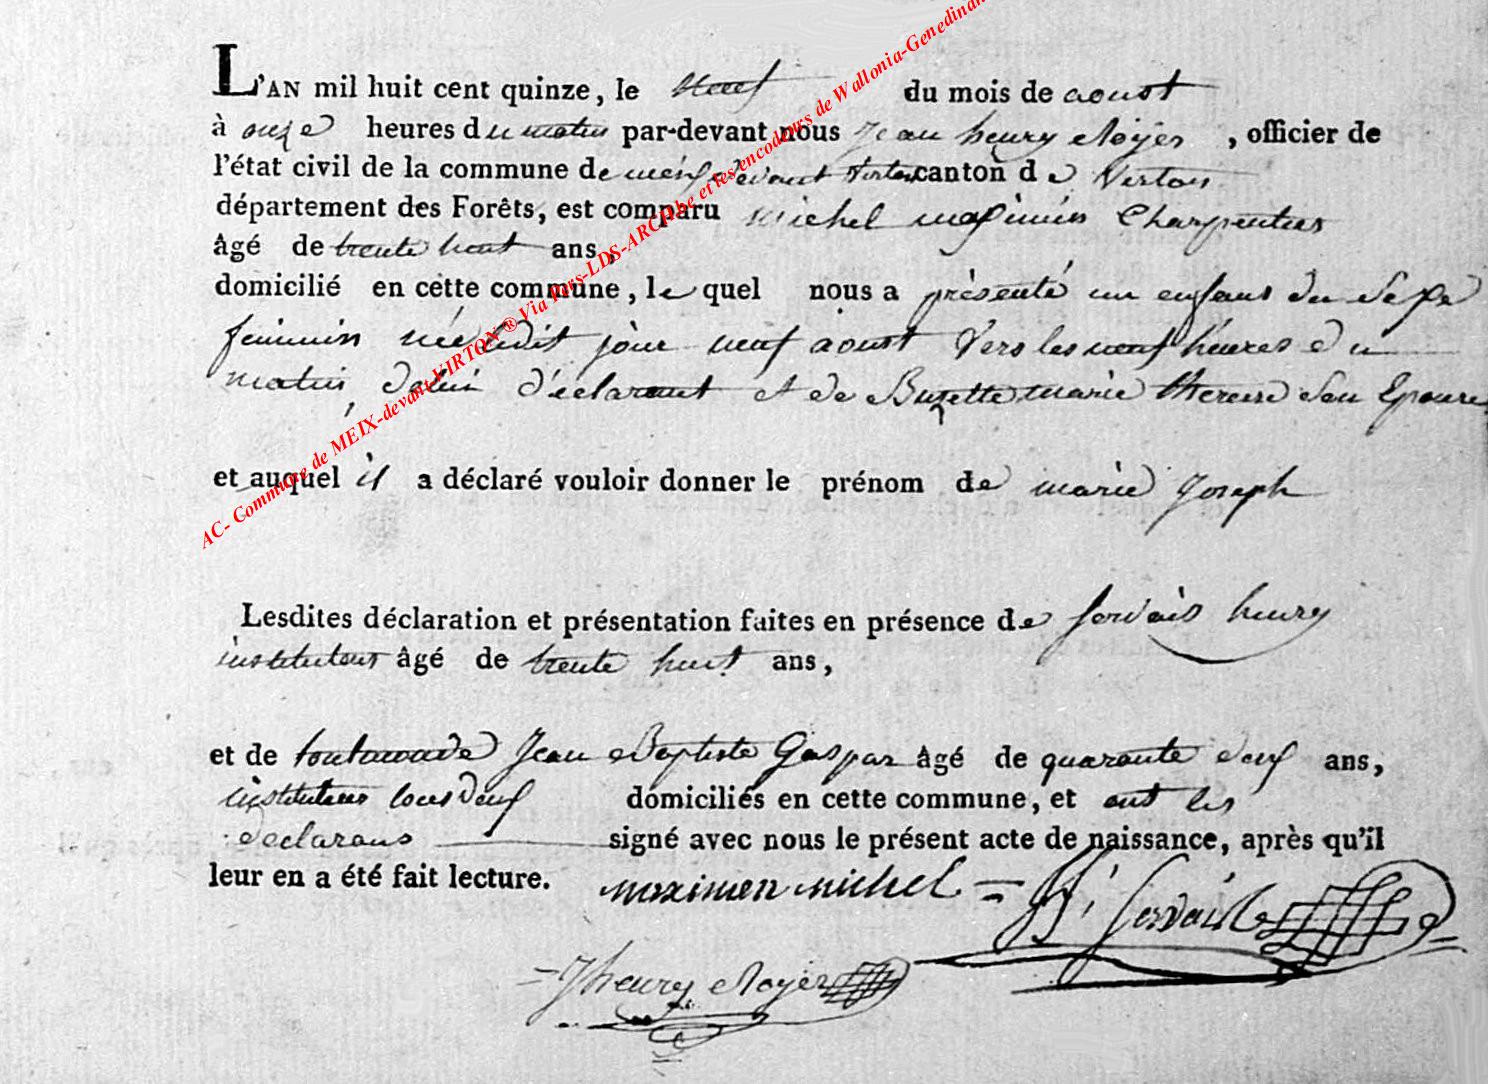 L'AN mil huit cent quinze, le neuf du mois de aoust
à onze heures du matin par-devant nous Jean henry Noyer, officier de
l'état civil de la commune de meix devant virton canton de Virton
département des Forêts, est comparu Michel maximin Charpentier
âgé de trente huit ans,
domicilié en cette commune, le quel nous a présenté un enfant du Sexe
feminin née ledit jour neuf aoust Vers les neuf heures du
matin, de lui déclarant et de Buzette marie therese Son Epouse
et auquel il a déclaré vouloir donner le prénom de marie Joseph
Lesdites déclaration et présentation faites en présence de Servais henry
instituteur âgé de trente huit ans,
et de Jean Baptiste Gaspar âgé de quarante deux ans,
instituteur tous deux domiciliés en cette commune, et ont les
declarans signé avec nous le présent acte de naissance, après qu'il
leur en a été fait lecture.
maximin michel = H Servais
= J henry Noyer
AC- Commune de MEIX-devant-VIRTON ® Via Pers-LDS-ARCH.be et les encodeurs de Wallonia-Genedinan